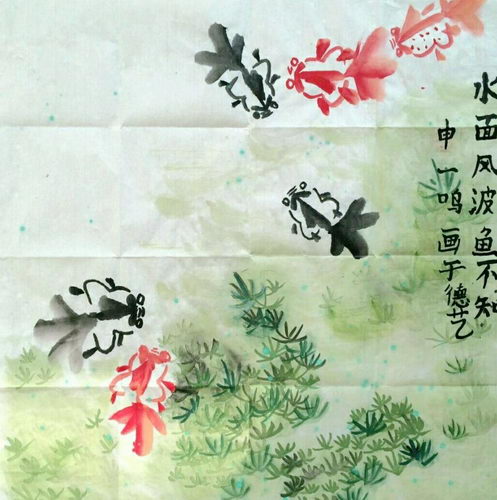 水面风波鱼不知
申一鸣画于德艺